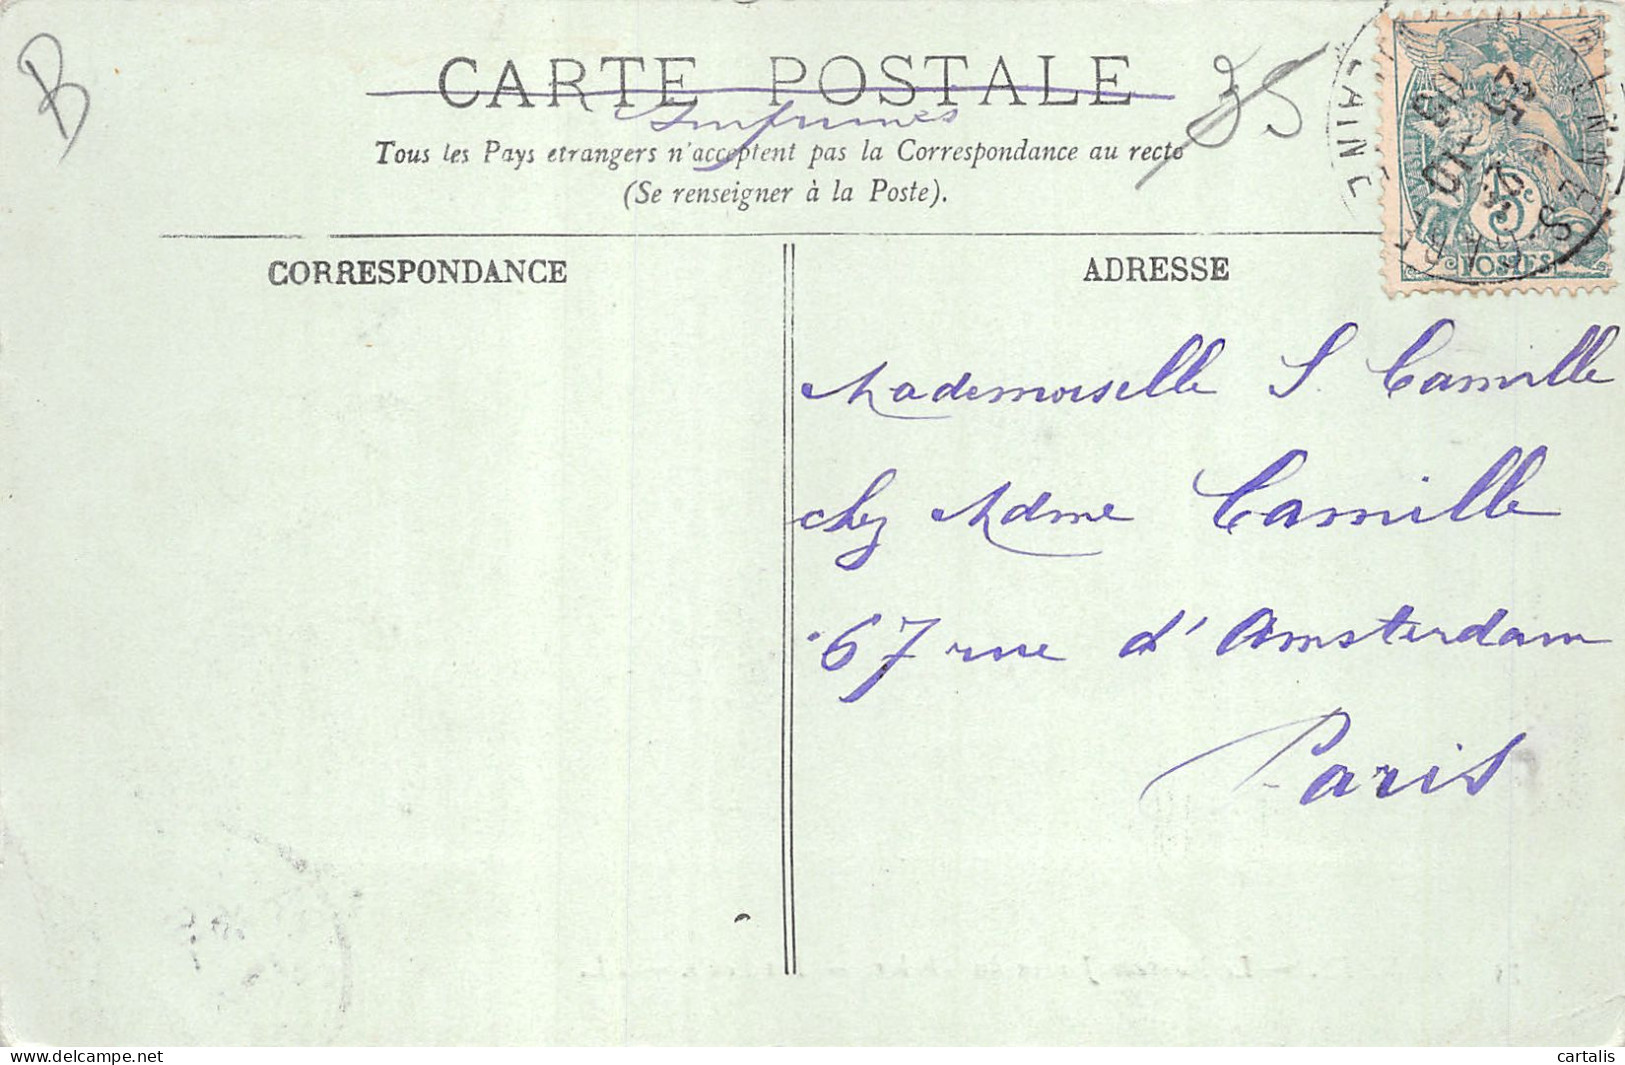 B
CARTE POSTALE
Imprimés
35
Tous les Pays etrangers n'acceptent pas la Correspondance au recto
(Se renseigner à la Poste).
CORRESPONDANCE
ADRESSE
5c
POSTES
Mademoiselle S. Camille
chez Mdme Camille
67 rue d'Amsterdam
Paris
www.delcampe.net
cartalis